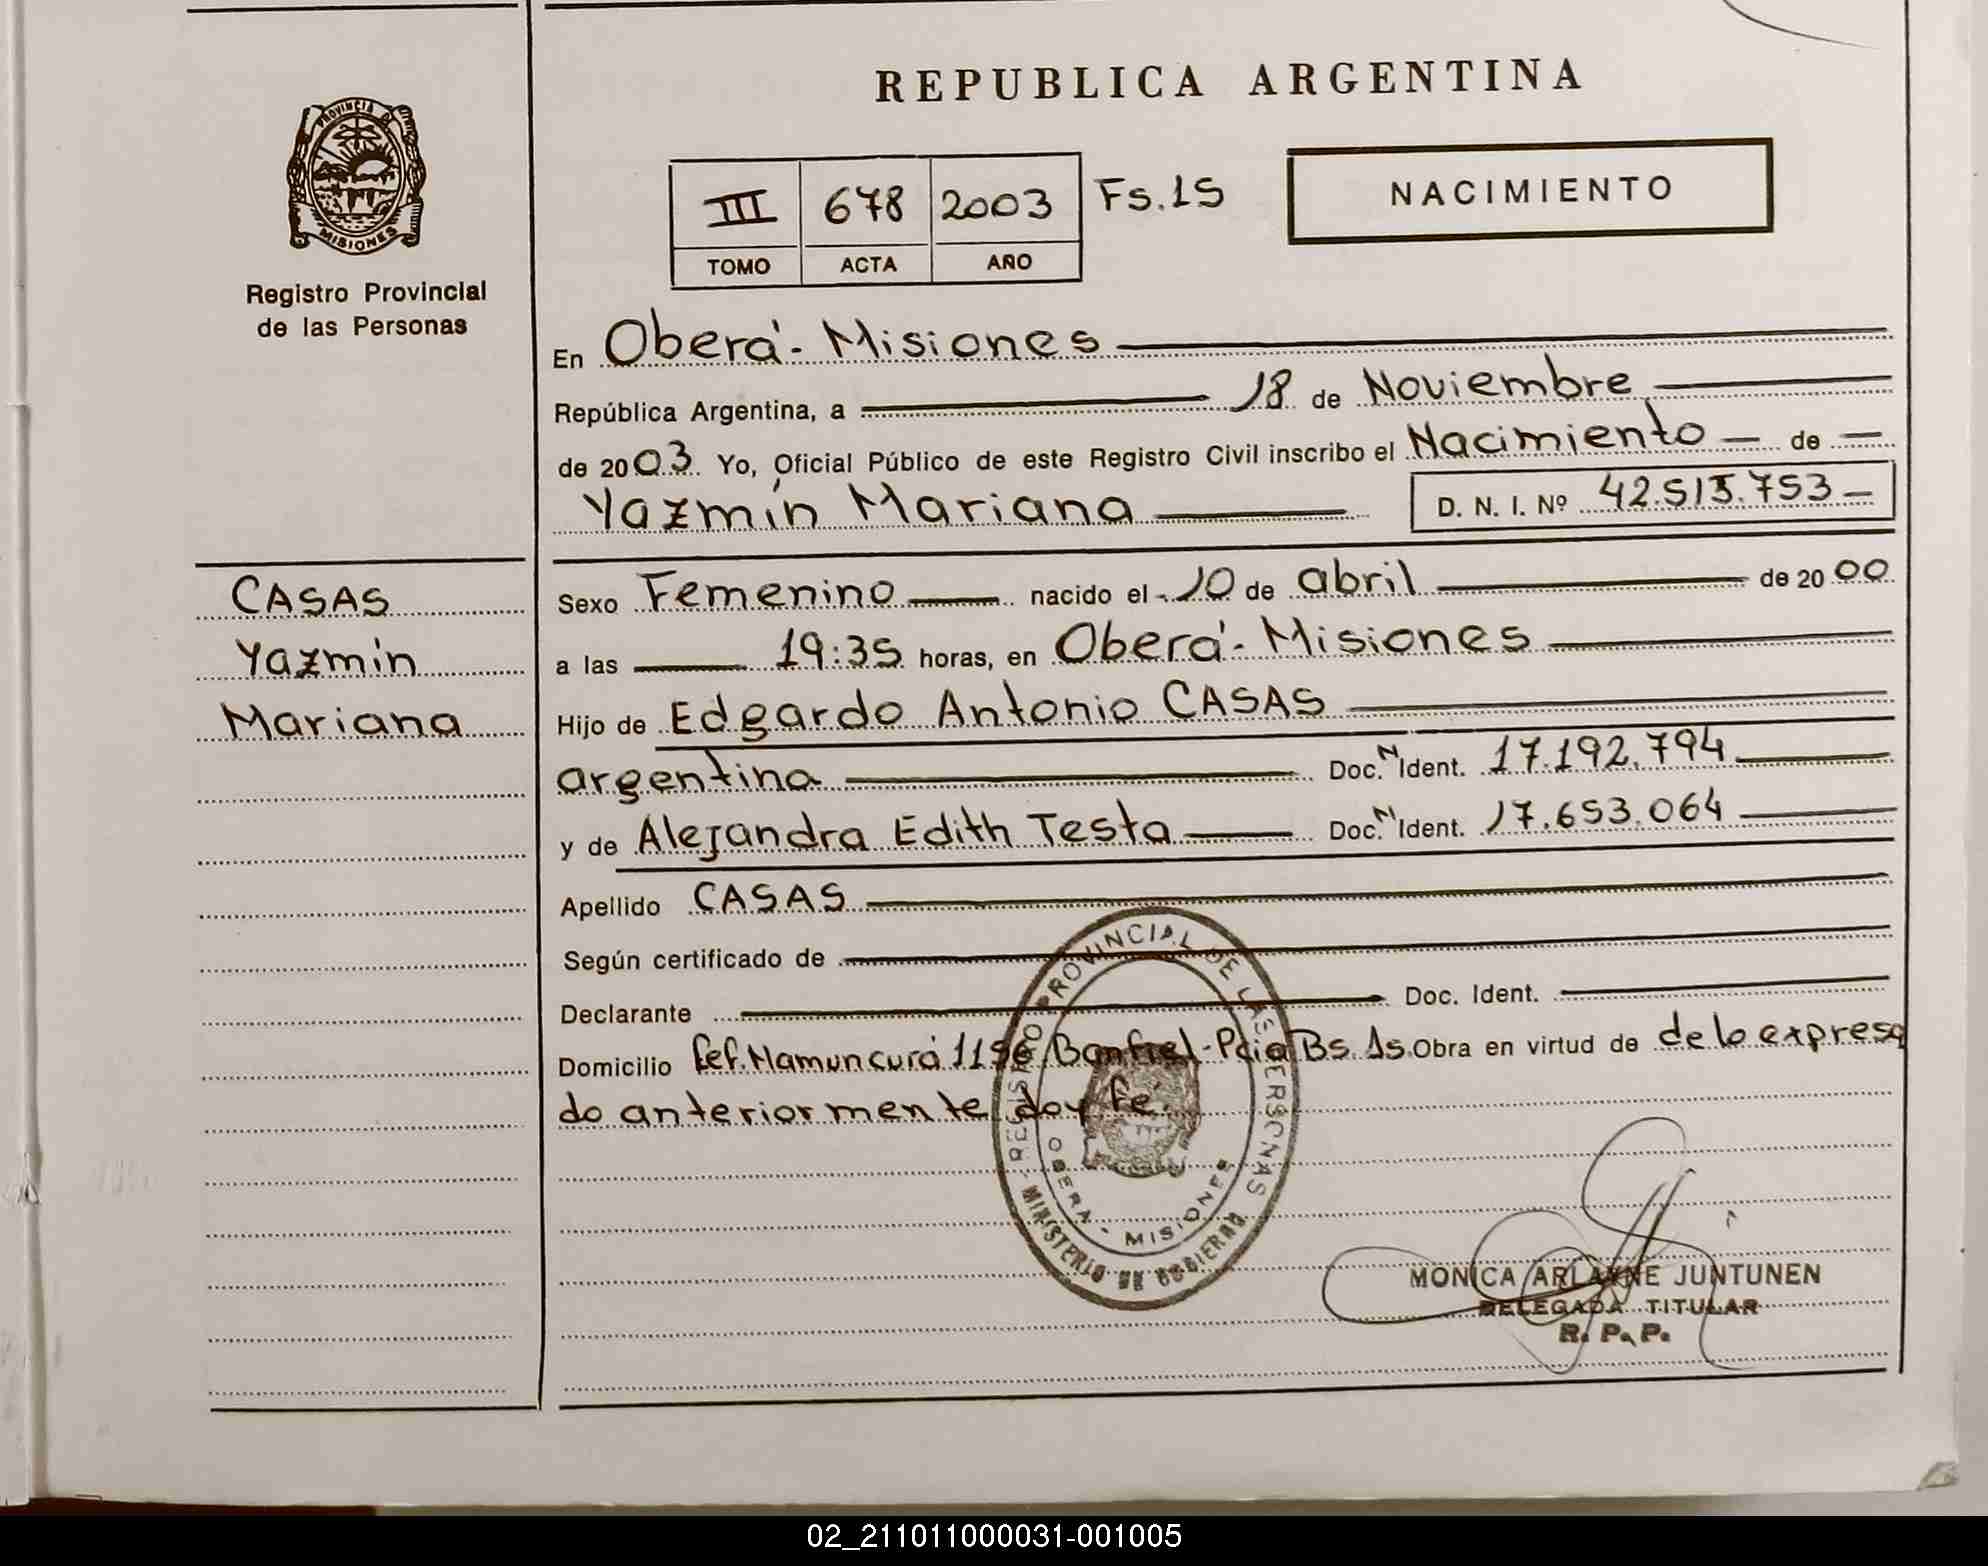 REPUBLICA ARGENTINA
PROVINCIA DE
MISIONES
Registro Provincial
de las Personas
III 678 2003 Fs.15
TOMO ACTA AÑO
NACIMIENTO
En Oberá - Misiones
República Argentina, a 18 de Noviembre
de 2003. Yo, Oficial Público de este Registro Civil inscribo el Nacimiento de
Yazmín Mariana D. N. I. Nº 42.513.753
CASAS
Yazmín
Mariana
Sexo Femenino nacido el 10 de abril de 2000
a las 19:35 horas, en Oberá - Misiones
Hijo de Edgardo Antonio CASAS
argentina Doc. N Ident. 17.192.794
y de Alejandra Edith Testa Doc. N Ident. 17.653.064
Apellido CASAS
Según certificado de
Declarante Doc. Ident.
Domicilio Cef. Namuncurá Banfiel - Pcia Bs. As. Obra en virtud de de lo expresa
do anteriormente doy fé.
REGISTRO PROVINCIAL DE LAS PERSONAS
OBERA - MISIONES
MINISTERIO DE GOBIERNO
MONICA ARLAYNE JUNTUNEN
DELEGADA TITULAR
R. P. P.
02_211011000031-001005